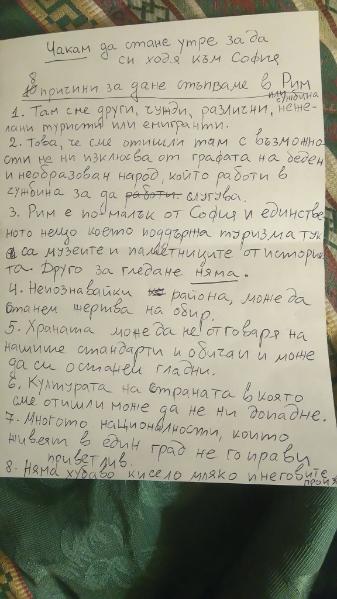 Чакам да стане утре за да
си ходя към София
8
причини за дане стъпваме в Рим
или чужбина
1. Там сме други, чужди, различни, неже-
лани туристи или емигранти.
2. Това, че сме отишли там с възможно
сти не ни изключва от графата на беден
и необразован народ, който работи в
чужбина за да работи слугува.
3. Рим е по-малък от София и единстве
ното нещо което поддържа туризма тук
са музеите и паметниците от истори
та. Друго за гледане няма.
4. Непознавайки района, може да
станем жертва на обир.
5. Храната може да не отговаря на
нашите стандарти и обичаи и може
да си останем гладни.
6. Културата на страната в която
сме отишли може да не ни допадне.
7. Многото националности, които
живеят в един град не го прави
приветлив.
8. Няма хубаво кисело мляко и неговите